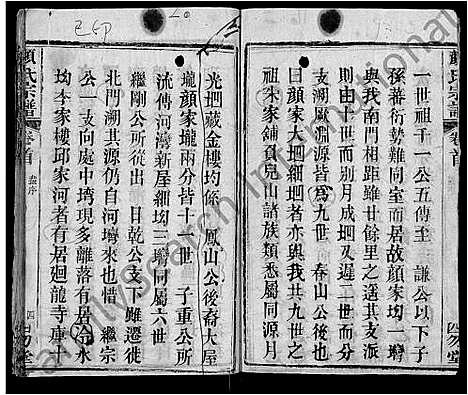 顏氏宗譜
卷首
四勿堂
一世祖于一公五傳至 謙公以下子
孫蕃衍勢難同室而居故顏家坳一塆
與我南門相距雖廿餘里之遥其支派
出自二世而則月成垇又遲二世而分
支溯厥淵源皆爲九世 春山公後也
曰顏家大垇細垇者亦與我共九世
祖朱家鋪百兒山諸族類悉屬同源月
光垇藏金樓均係 鳳山公後裔大屋
壠顏家壠兩分皆十一世 子重公所
流傳河灣新屋細坳三塆同屬六世
繼剛公所從出 日乾公支下雖遷徙
北門溯其源仍自河塆來也惜 繼宗
公一支向處中塆現多離落有居冷水
坳李家樓邱家河者有居廻龍寺庫下
顏氏宗譜
卷首
序
四
四勿堂
FamilySearch International